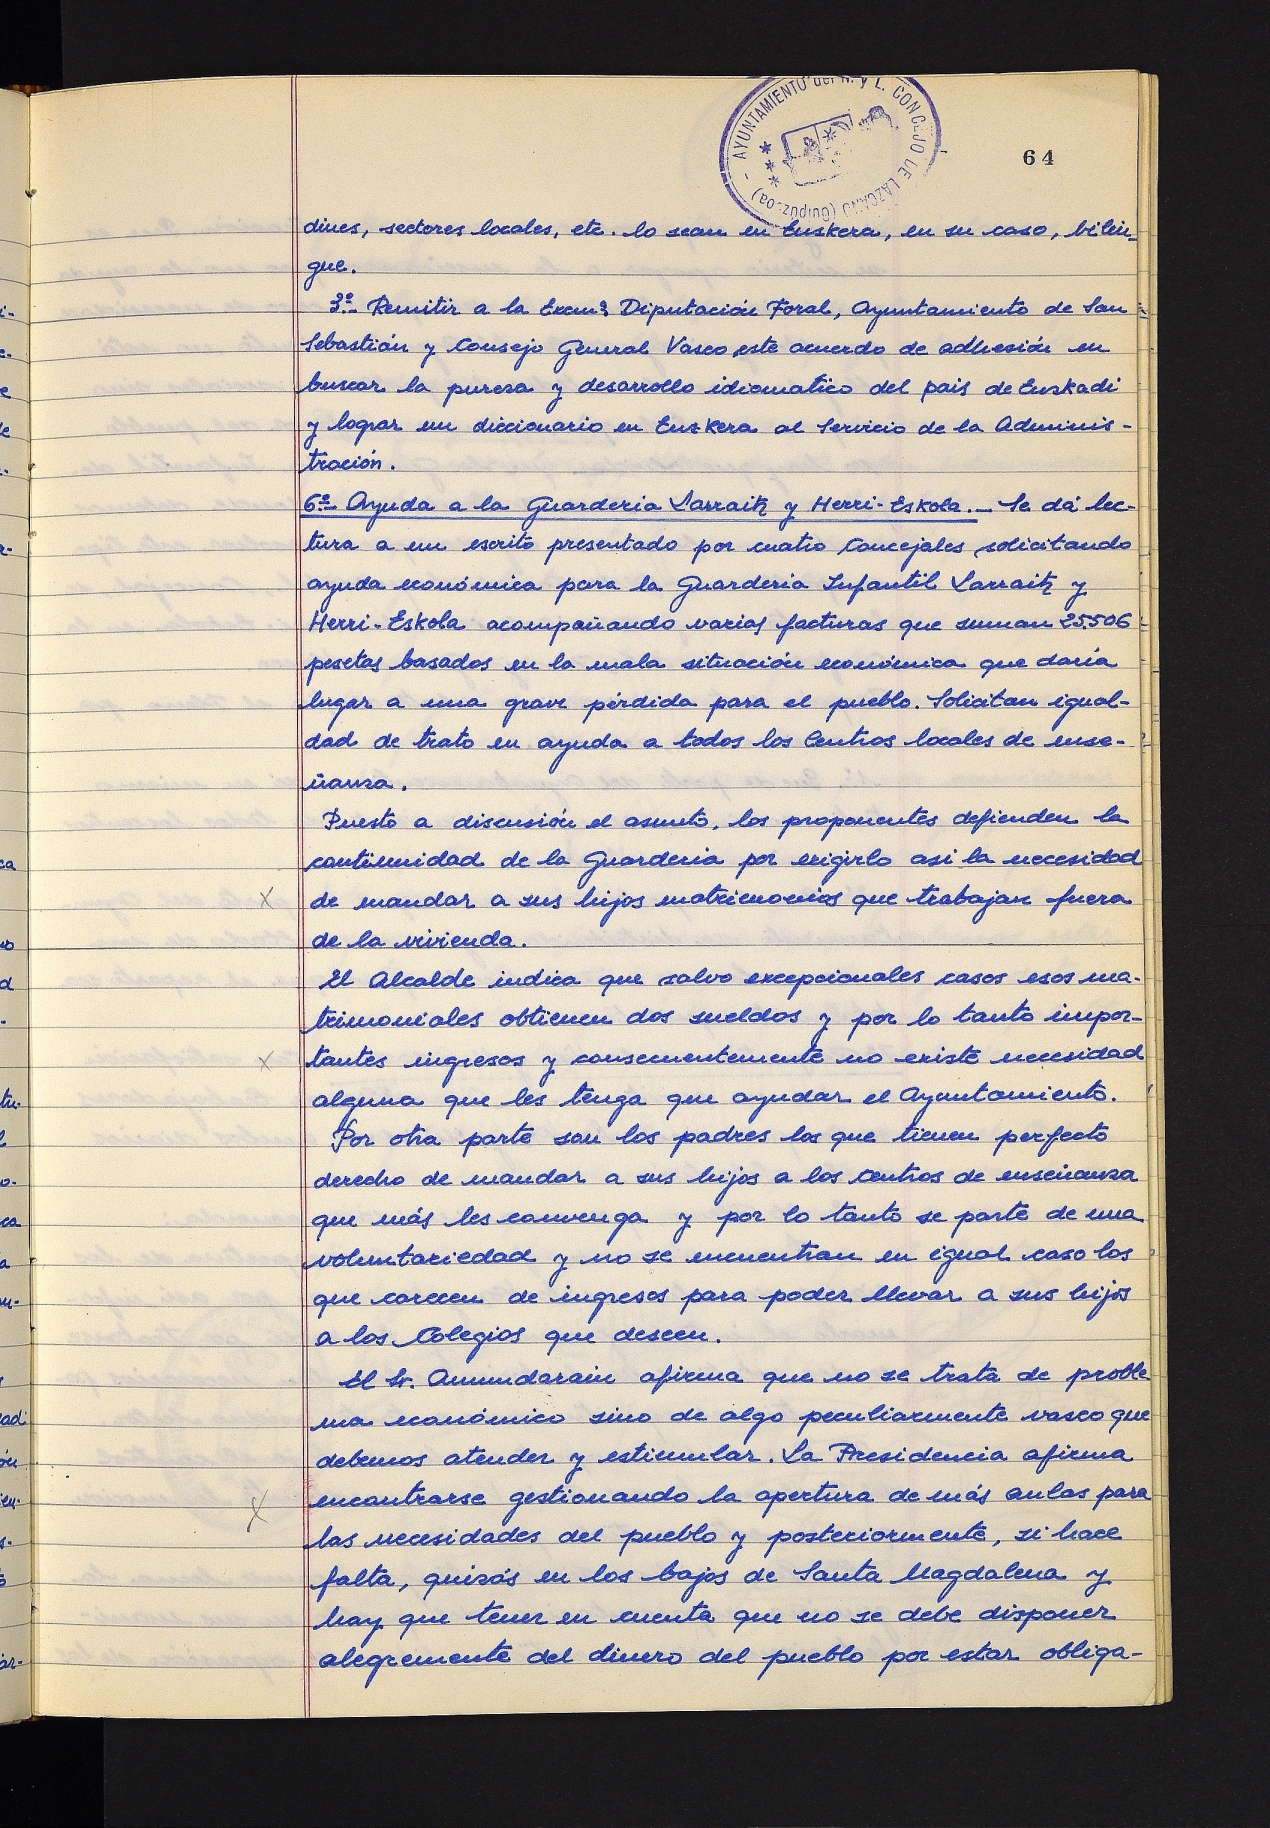 AYUNTAMIENTO del N. y L. CONCEJO DE LAZCANO (Guipúzcoa)
64
dines, sectores locales, etc. lo sean en Euskera, en su caso, bilin-
gue.
3º- Remitir a la Excmª Diputación Foral, Ayuntamiento de San
Sebastián y Consejo General Vasco este acuerdo de adhesión en
buscar la pureza y desarrollo idiomatico del pais de Euzkadi
y lograr un diccionario en Euzkera al Servicio de la Adminis-
tración.
6º- Ayuda a la Guarderia Larraitz y Herri-Eskola.- Se dá lec-
tura a un escrito presentado por cuatro Concejales solicitando
ayuda económica para la Guarderia Infantil Larraitz y
Herri-Eskola acompañando varias facturas que suman 25.506
pesetas basados en la mala situación económica que daría
lugar a una grave pérdida para el pueblo. Solicitan igual-
dad de trato en ayuda a todos los Centros locales de ense-
ñanza.
Puesto a discusión el asunto, los proponentes defienden la
continuidad de la Guarderia por exigirlo asi la necesidad
de mandar a sus hijos matrimonios que trabajan fuera
de la vivienda.
El Alcalde indica que salvo excepcionales casos esos ma-
trimoniales obtienen dos sueldos y por lo tanto impor-
tantes ingresos y consecuentemente no existe necesidad
alguna que les tenga que ayudar el Ayuntamiento.
Por otra parte son los padres los que tienen perfecto
derecho de mandar a sus hijos a los centros de enseñanza
que más les convenga y por lo tanto se parte de una
voluntariedad y no se encuentran en igual caso los
que carecen de ingresos para poder llevar a sus hijos
a los Colegios que deseen.
El Sr. Amundarain afirma que no se trata de proble
ma económico sino de algo peculiarmente vasco que
debemos atender y estimular. La Presidencia afirma
encontrarse gestionando la apertura de más aulas para
las necesidades del pueblo y posteriormente, si hace
falta, quizás en los bajos de Santa Magdalena y
hay que tener en cuenta que no se debe disponer
alegremente del dinero del pueblo por estar obliga-